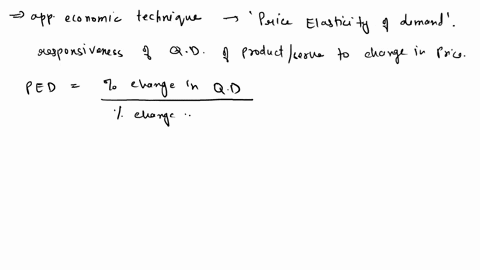 ⇒ app economic technique → 'Price Elasticity of demand'.
responsiveness of Q.D. of product/serve to change in Price.
PED = % change in Q.D
% change ..